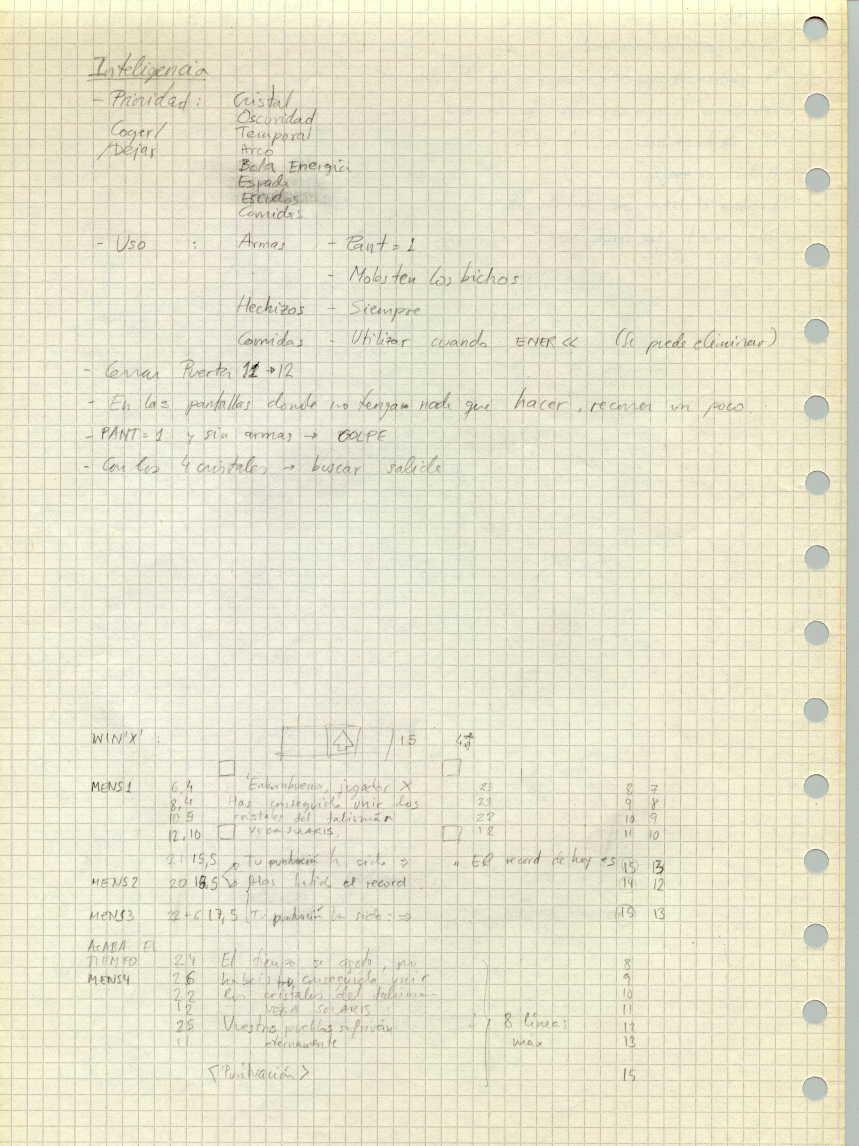 Inteligencia
- Prioridad : Cristal
Oscuridad
Coger/ Temporal
/Dejar Arco
Bola Energia
Espada
Escudos
Comidas
- Uso : Armas - Pant = 1
- Molesten los bichos
Hechizos - Siempre
Comidas - Utilizar cuando ENER << (Se puede eliminar)
- Cerrar Puerta 11 → 12
- En las pantallas donde no tengan nada que hacer, recorrer un poco.
- PANT = 1 y sin armas → GOLPE
- Con los 4 cristales → buscar salida
WIN'X' : 15
MENS1 6,4 Enhorabuena, jugador X 23 8 7
8,4 Has conseguido unir los 23 9 8
10,5 cristales del talismán 22 10 9
12,10 VEGA SOLARIS. 12 11 10
21 15,5 Tu puntuación ha sido ⇒ " El record de hoy es 15 13
MENS2 20 Has batido el record 14 12
MENS3 22+6 17,5 Tu puntuación ha sido: ⇒ 15 13
ACABA EL
TIEMPO 24 El tiempo se agotó, no 8
MENS4 26 habeis conseguido unir 9
22 los cristales del talisman 10
12 VEGA SOLARIS 11
25 Vuestros pueblos sufrirán 8 lineas 12
11 eternamente max 13
<Puntuación> 15